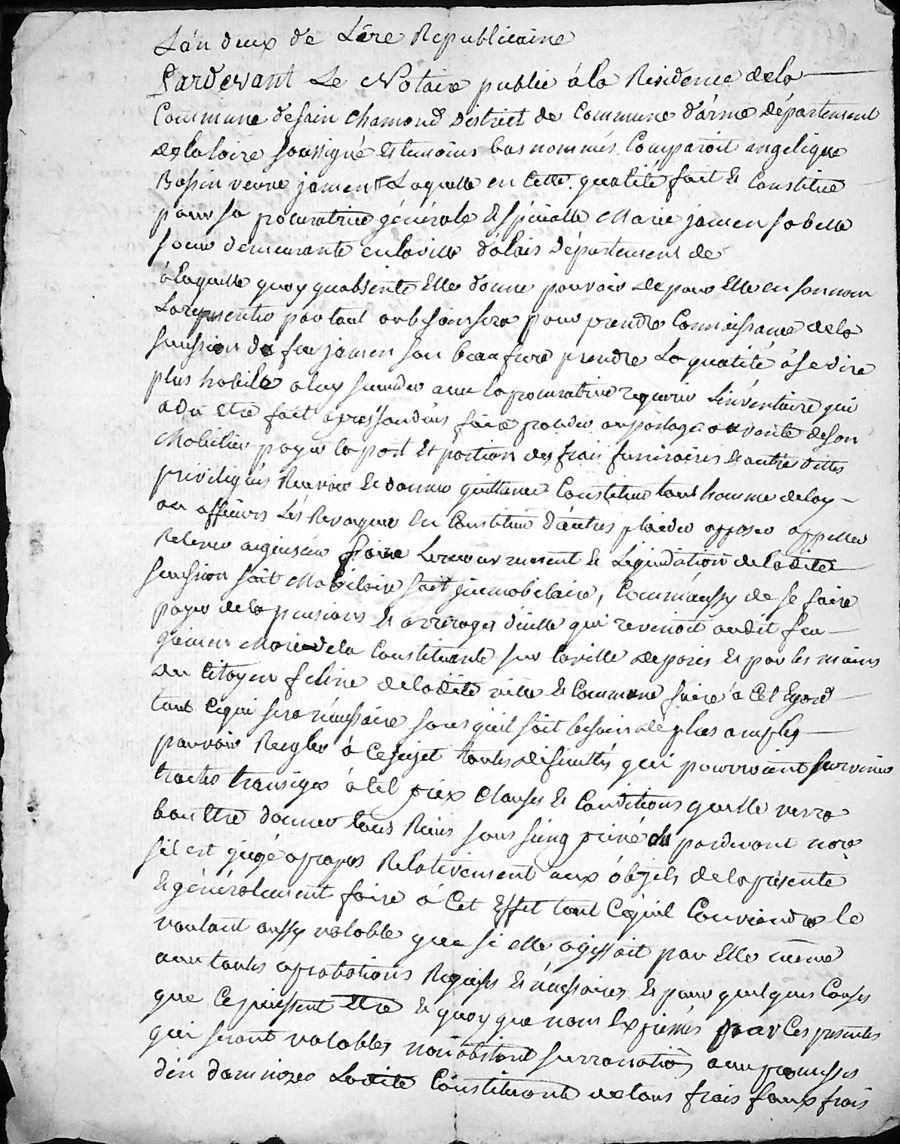 L'an deux de L'ère Republicaine
Pardevant Le Notaire public à la Résidence dela
Commune de sain Chamond District de Commune d'arme département
dela loire soussigné et temoins bas nommés. Comparoit angelique
Bassin veuve jamen Laquelle en Cette qualité fait et Constitue
pour sa procuratrice générale et spécialle Marie jamen sa belle
soeur demeurante en laville d'alais département de
à laquelle quoy qu'absente Elle donne pouvoir de pour Elle en son nom
La representer partout ou besoin sera pour prendre Connoissance dela
succession de feu jamen son beau frere prendre La qualité à se dire
plus habile a luy succeder avec la procuratrice requerir L'inventaire qui
a du Etre fait apres son décès faire proceder au partage ou vente deson
Mobilier payer la part Et portion des frais funeraires et autres dettes
privilegiés Recevoir et donner quittance Constituer tout homme deloy
ou affaires Les Revoquer En Constituer d'autres plaider opposer appeller
Relever acquiescer faire Le recouvrement et Liquidation deladite
succession soit Mobiliaire soit jmmobiliaire, Comme aussy de se faire
payer dela pension et arrerages d'icelle qui revenoit audit feu
jamen Mari dela Constituante sur laville deparis et par les mains
du Citoyen feline deladite ville et Commune faire à Cet Egard
tout Cequi sera nécessaire sans qu'il soit besoin de plus amples
pouvoir Regler à Ce sujet toutes dificultés qui pourroient survenir
traiter transiger à tel prix Clauses et Conditions quelle verra
bon Etre donner tous Reçus sous seing privé ou pardevant nore
s'il est jugé apropos Relativement aux objets dela présente
Et généralement faire à Cet Effet tout Cequil Conviendra le
voulant aussy valable que si elle agissoit par Elle même
avec toutes aprobations Requises et nécessaires et pour quelques Causes
que Ce puissent Etre et quoy que non Exprimés par Ces presentes
qui seront valables nonobstant surranation avec promesses
d'en dommager Ladite Constituante de tous frais faux frais